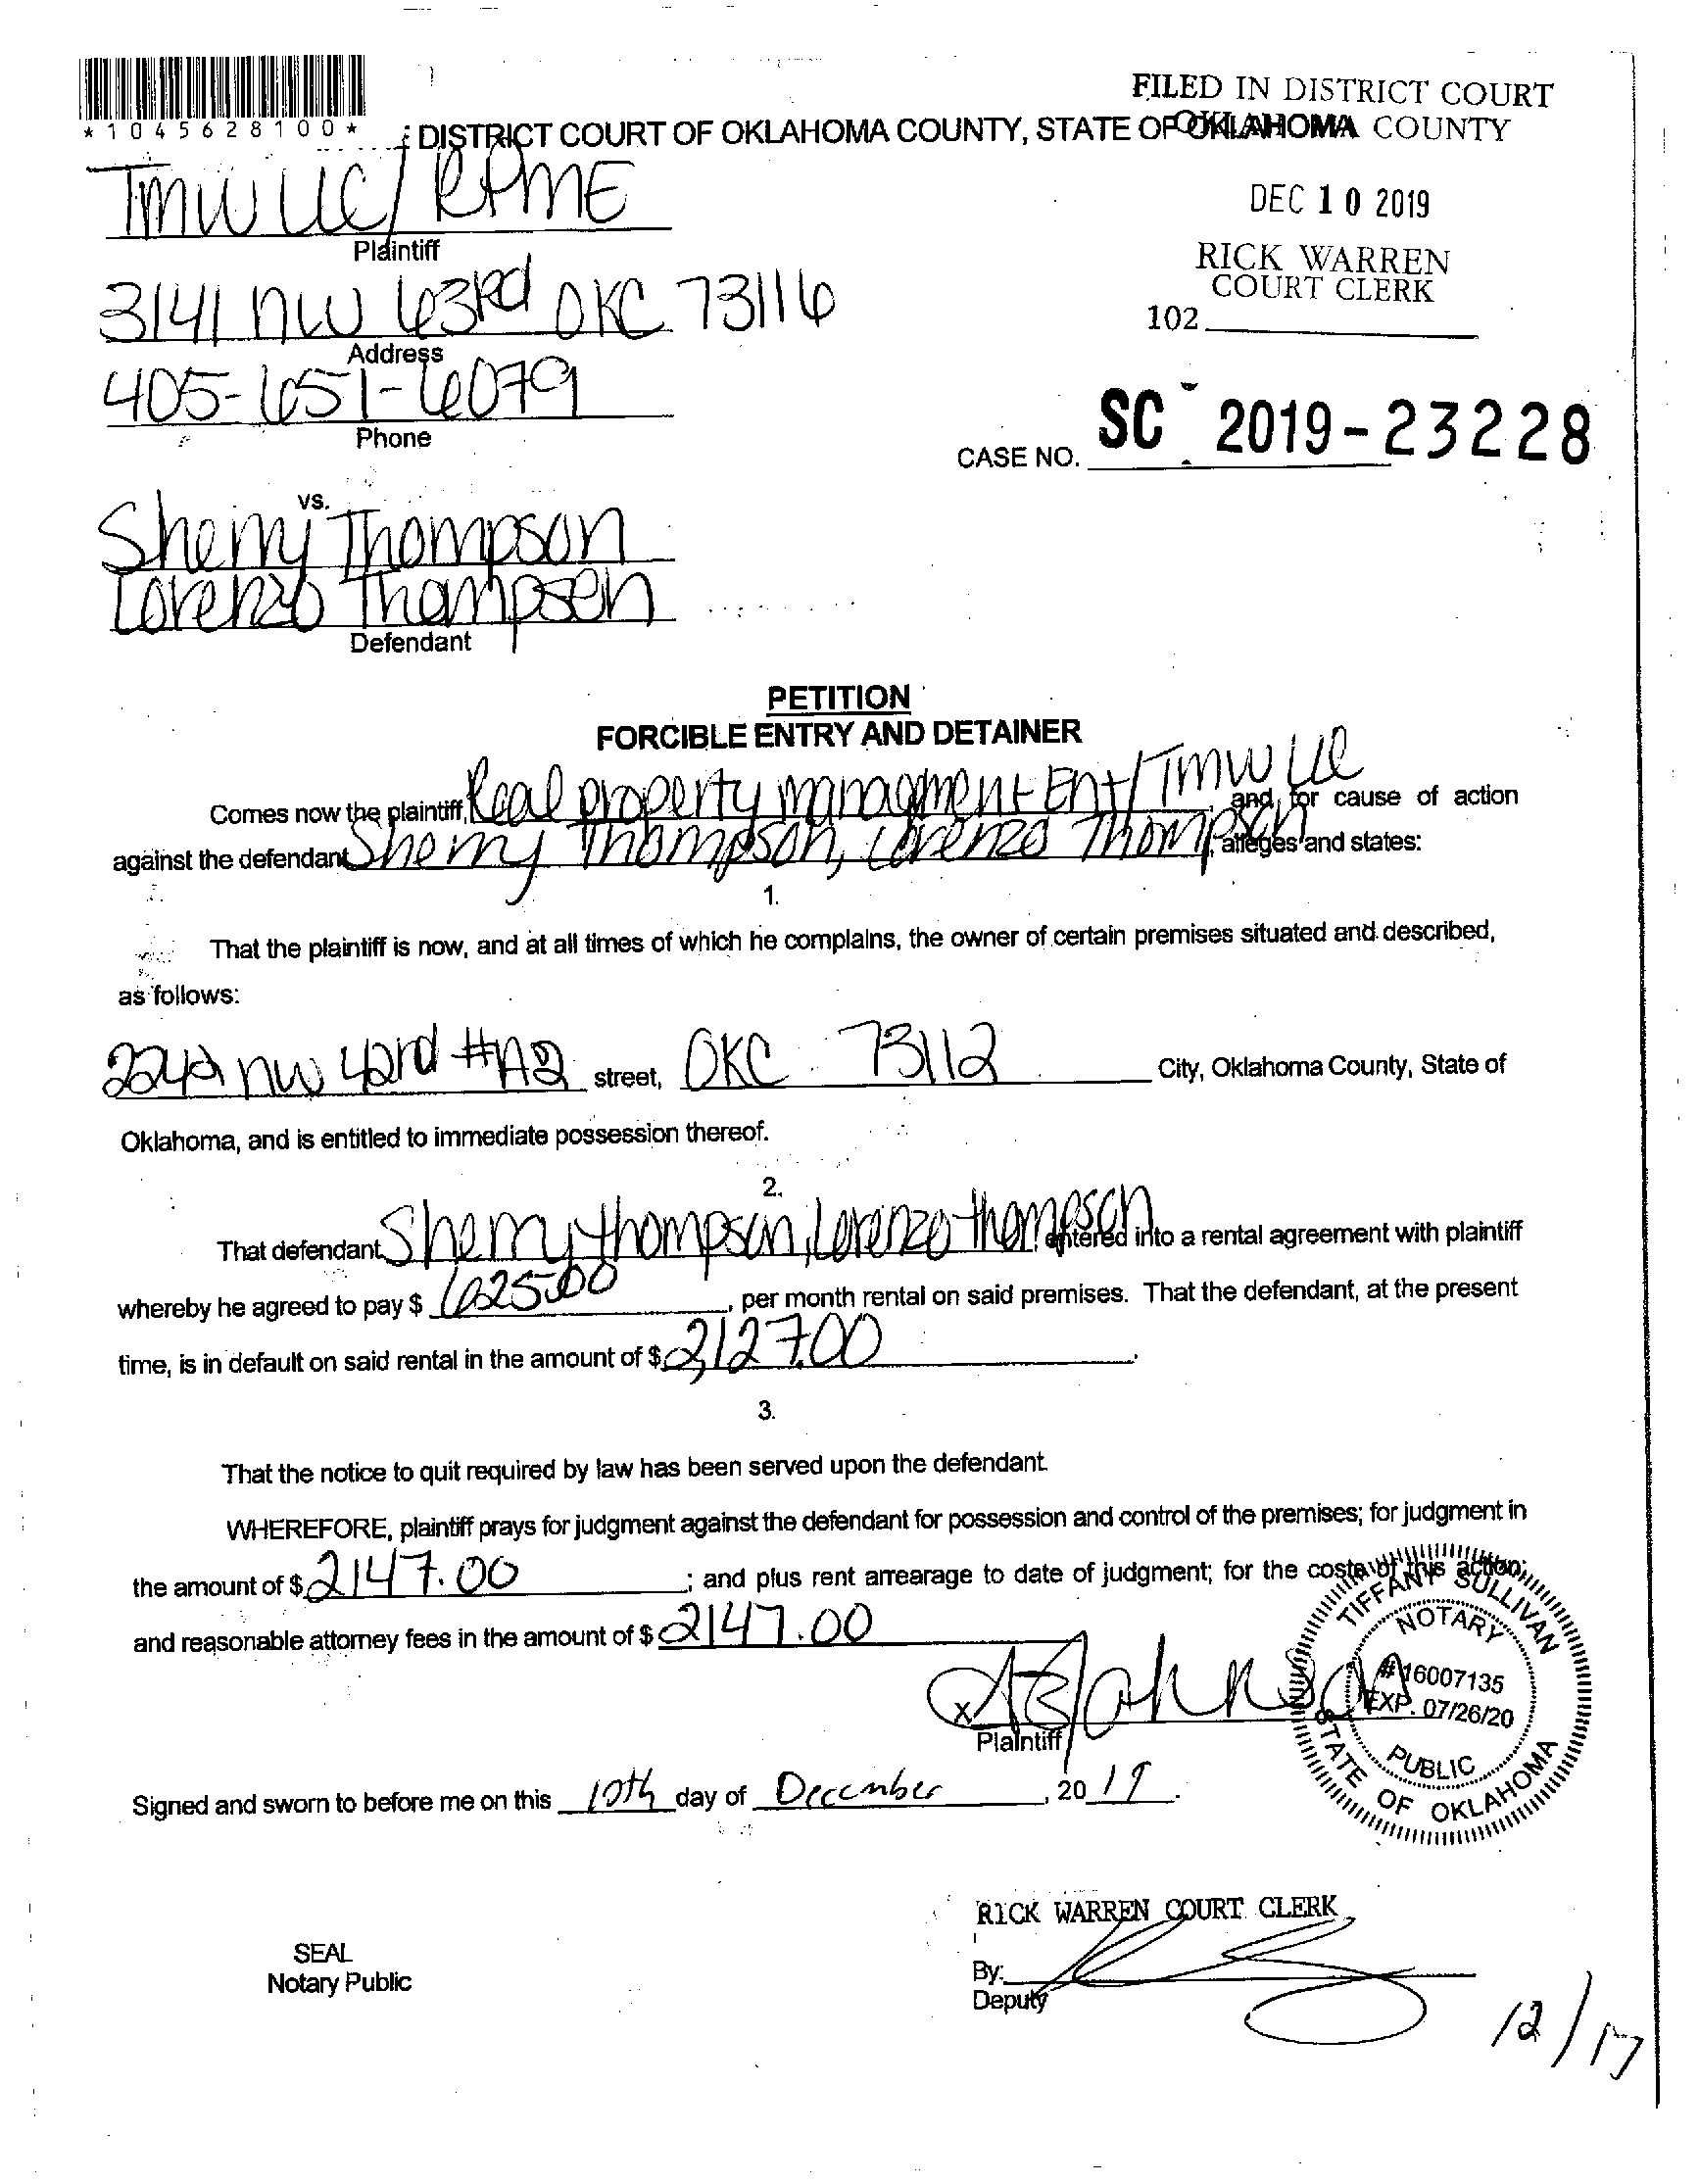 FILED IN DISTRICT COURT
OKLAHOMA COUNTY
*1045628100*
DISTRICT COURT OF OKLAHOMA COUNTY, STATE OF OKLAHOMA
TMW LLC/RPME
DEC 10 2019
Plaintiff
RICK WARREN
COURT CLERK
3141 NW 63rd OKC 73116
102
Address
405-651-6079
Phone
CASE NO. SC 2019-23228
vs.
Sherry Thompson
Lorenzo Thompson
Defendant
PETITION
FORCIBLE ENTRY AND DETAINER
Comes now the plaintiff, Real property managment Ent/TMW LLC and, for cause of action
against the defendant Sherry Thompson, Lorenzo Thompson, alleges and states:
1.
That the plaintiff is now, and at all times of which he complains, the owner of certain premises situated and described,
as follows:
NW 42nd #A2 street, OKC 73112 City, Oklahoma County, State of
Oklahoma, and is entitled to immediate possession thereof.
2.
That defendant Sherry thompson, Lorenzo thompson entered into a rental agreement with plaintiff
whereby he agreed to pay $ 625.00, per month rental on said premises. That the defendant, at the present
time, is in default on said rental in the amount of $ 2,127.00.
3.
That the notice to quit required by law has been served upon the defendant.
WHEREFORE, plaintiff prays for judgment against the defendant for possession and control of the premises; for judgment in
the amount of $ 2147.00; and plus rent arrearage to date of judgment; for the costs of this action;
and reasonable attorney fees in the amount of $ 2147.00
x Johnson
Plaintiff
TIFFANY SULLIVAN
NOTARY
#16007135
EXP. 07/26/20
PUBLIC
STATE OF OKLAHOMA
Signed and sworn to before me on this 10th day of December, 2019.
RICK WARREN COURT CLERK
SEAL
Notary Public
By:
Deputy
12/17